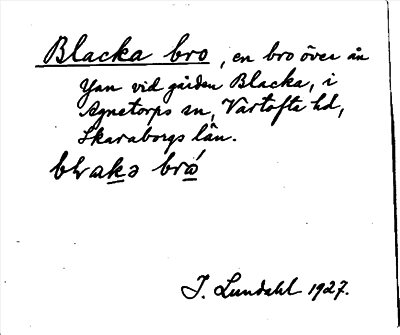 Blacka bro, en bro över ån
Yan vid gården Blacka, i
Agnetorps sn, Vartofta hd,
Skaraborgs län.
bró
J. Lundahl 1927.